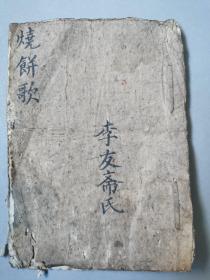 燒餅歌
李友斋氏